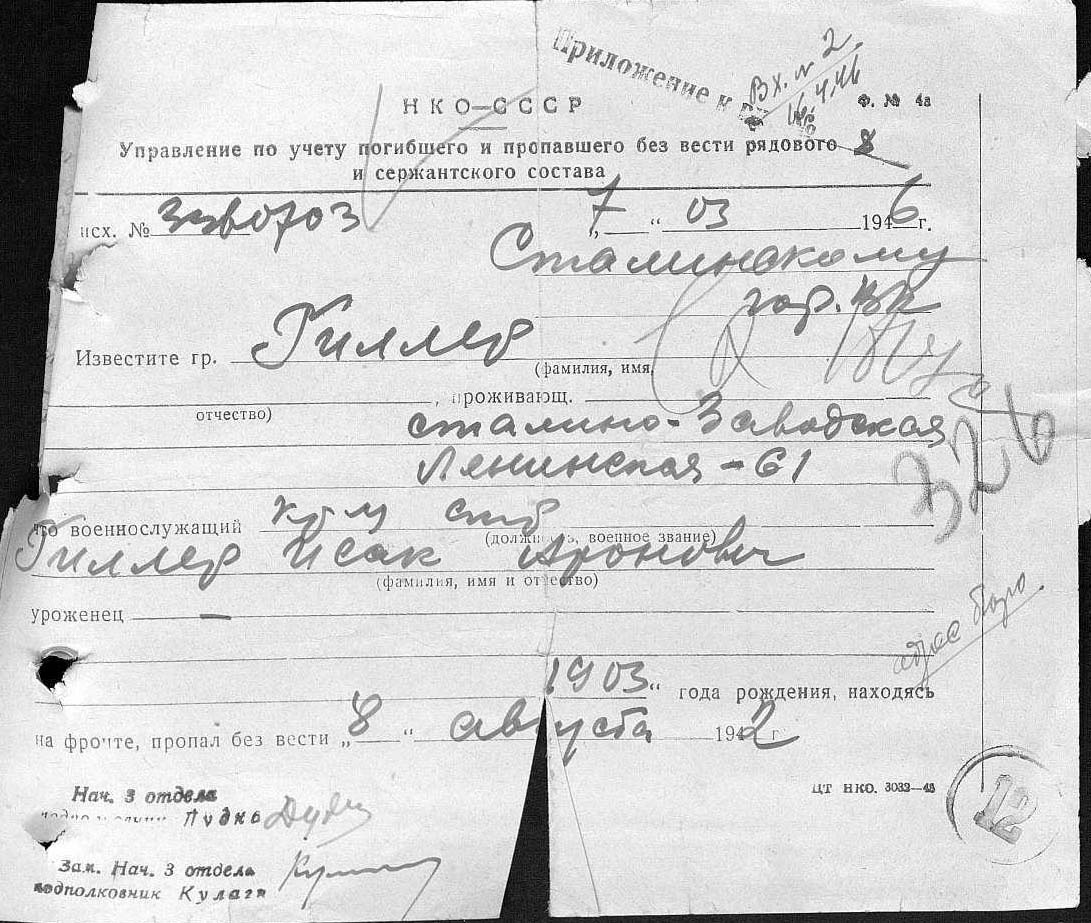 Приложение к
Вх. № 2.
16.4.46
НКО—СССР
Ф. № 4а
Управление по учету погибшего и пропавшего без вести рядового 8
и сержантского состава
исх. № „7“ 03 1946 г.
Сталинскому
гор. ВК
Известите гр. Гиллер
(фамилия, имя,
отчество) , проживающ.
Сталино-Заводская
Ленинская-61
326
что военнослужащий
(должность, военное звание)
Гиллер Исак Аронович
(фамилия, имя и отчество)
уроженец —
адрес бюро.
1903 “ года рождения, находясь
на фронте, пропал без вести „8“ августа 1942 г
ЦТ НКО. 3033—45
12
Нач. 3 отдела
Зам. Нач. 3 отдела
подполковник Кулаги